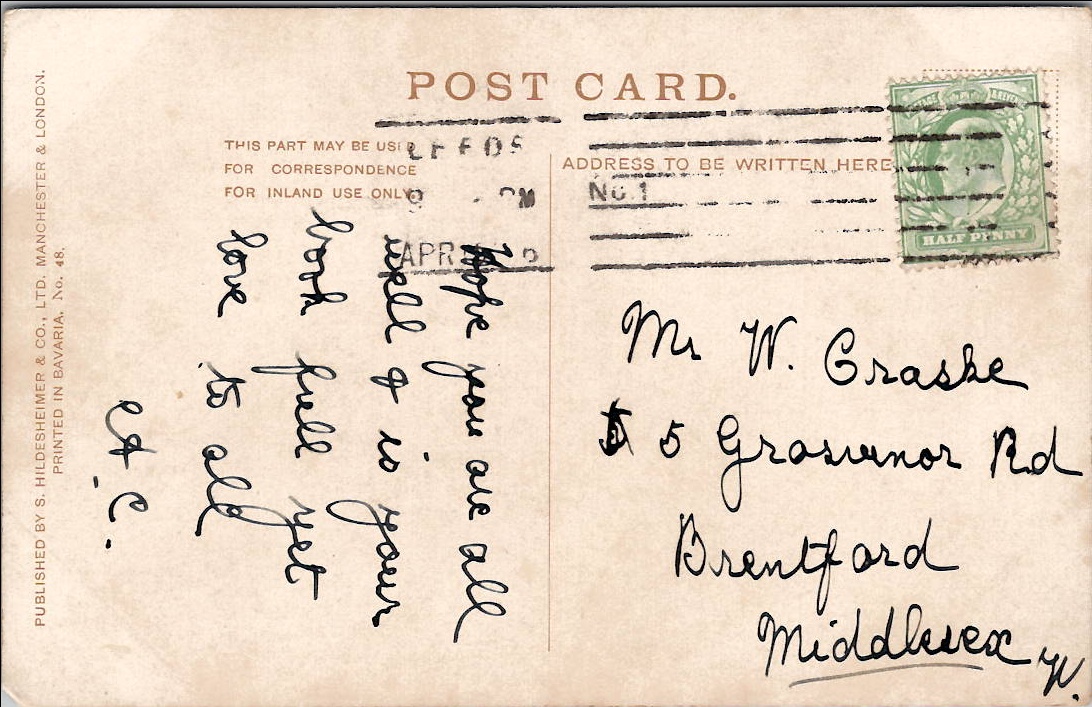 POST CARD.
THIS PART MAY BE USED
FOR CORRESPONDENCE
FOR INLAND USE ONLY
ADDRESS TO BE WRITTEN HERE
LEEDS
PM
APR
No.1
HALF PENNY
Hope you are all
well & is your
book full yet
love to all
A.C.
Mr W. Craske
5 Grosvenor Rd
Brentford
Middlesex
W.
PUBLISHED BY S. HILDESHEIMER & CO., LTD. MANCHESTER & LONDON.
PRINTED IN BAVARIA. No. 48.